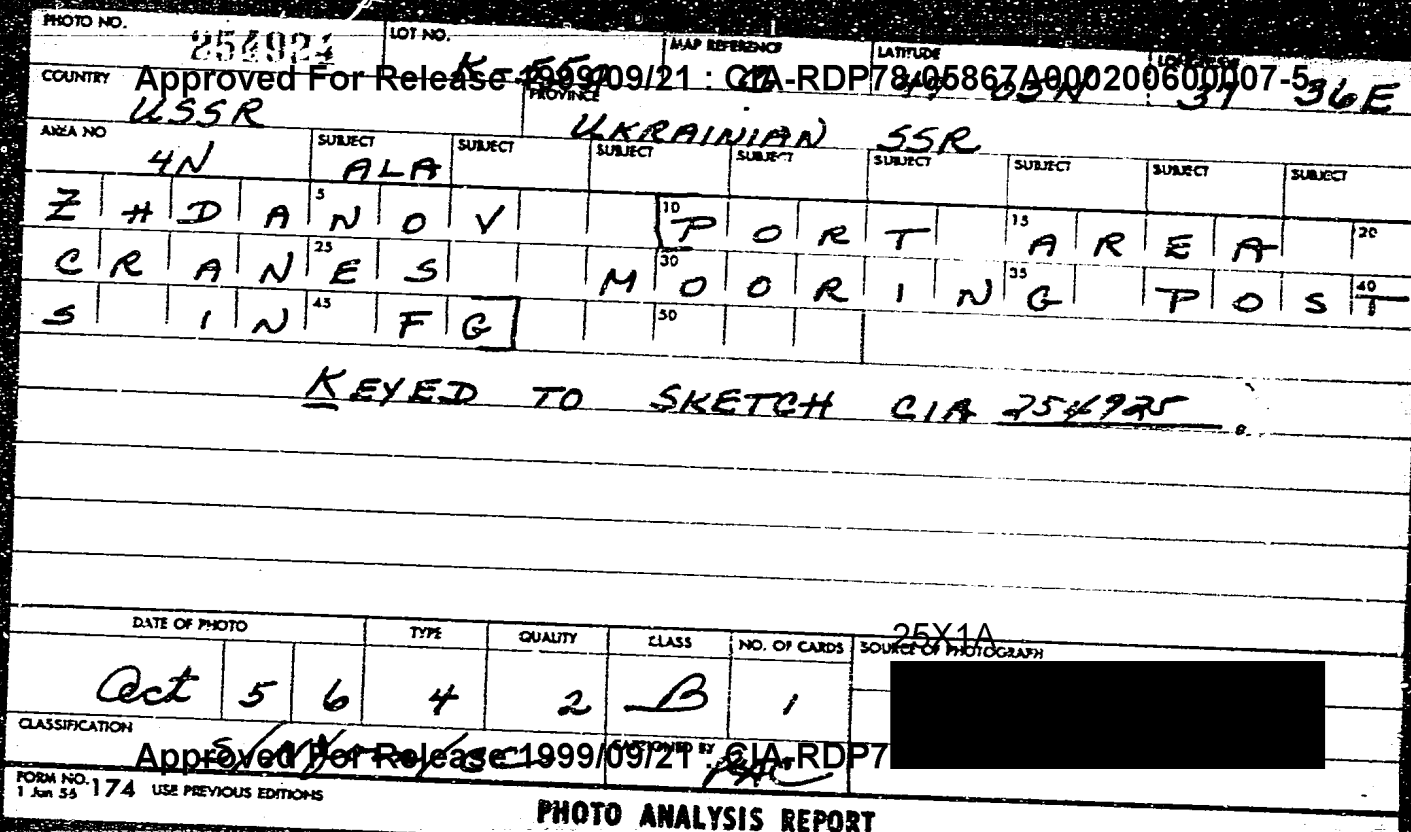 PHOTO NO. LOT NO. MAP REFERENCE LATITUDE
254924
COUNTRY Approved For Release 1999/09/21 : CIA-RDP78-05867A000200600007-5
03N 37 36E
USSR PROVINCE UKRAINIAN SSR
AREA NO SUBJECT SUBJECT SUBJECT SUBJECT SUBJECT SUBJECT SUBJECT SUBJECT
4N ALA
ZHDANOV [PORT AREA
CRANES MOORING POSI
S IN FG]
5 10 15 20
25 30 35 40
45 50
KEYED TO SKETCH CIA 254925.
DATE OF PHOTO TYPE QUALITY CLASS NO. OF CARDS SOURCE OF PHOTOGRAPH
25X1A
Oct 5 6 4 2 B 1
CLASSIFICATION CAPTIONED BY
Approved For Release 1999/09/21 : CIA-RDP7
FORM NO. 174 USE PREVIOUS EDITIONS
1 Jan 55
PHOTO ANALYSIS REPORT